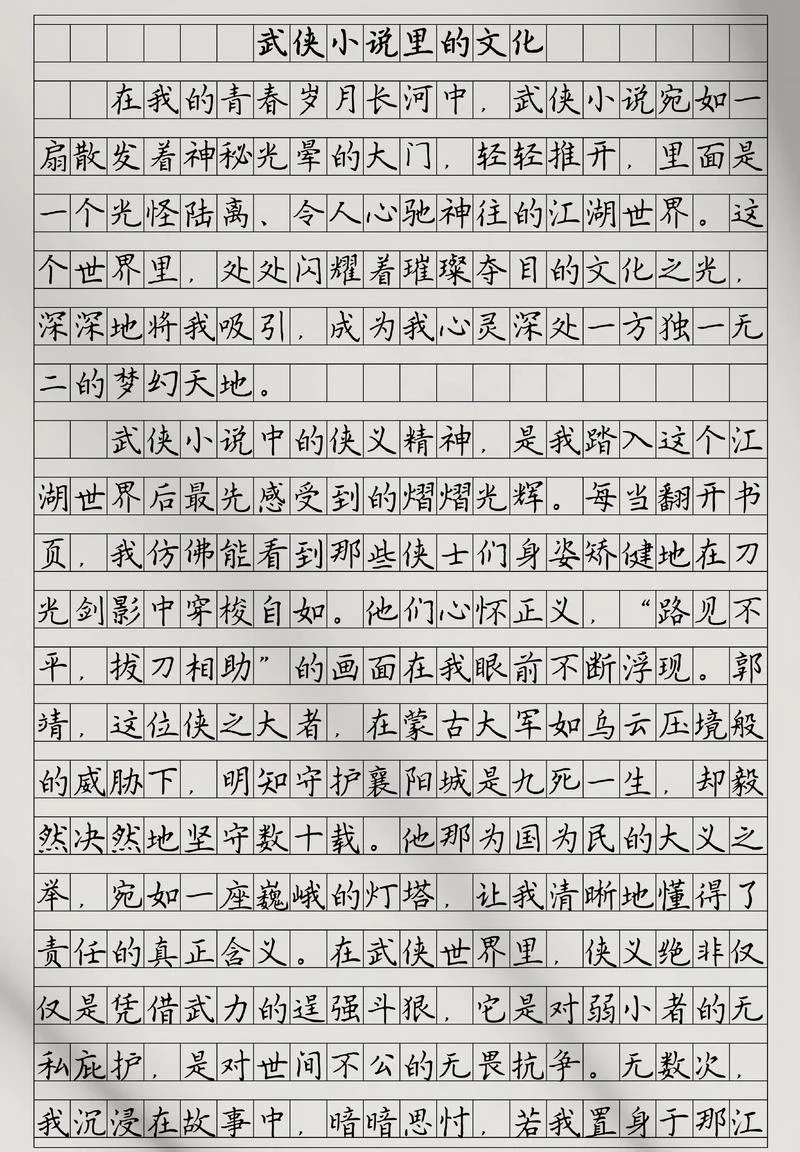 武侠小说里的文化
在我的青春岁月长河中，武侠小说宛如一
扇散发着神秘光晕的大门，轻轻推开，里面是
一个光怪陆离、令人心驰神往的江湖世界。这
个世界里，处处闪耀着璀璨夺目的文化之光，
深深地将我吸引，成为我心灵深处一方独一无
二的梦幻天地。
武侠小说中的侠义精神，是我踏入这个江
湖世界后最先感受到的熠熠光辉。每当翻开书
页，我仿佛能看到那些侠士们身姿矫健地在刀
光剑影中穿梭自如。他们心怀正义，“路见不
平，拔刀相助”的画面在我眼前不断浮现。郭
靖，这位侠之大者，在蒙古大军如乌云压境般
的威胁下，明知守护襄阳城是九死一生，却毅
然决然地坚守数十载。他那为国为民的大义之
举，宛如一座巍峨的灯塔，让我清晰地懂得了
责任的真正含义。在武侠世界里，侠义绝非仅
仅是凭借武力的逞强斗狠，它是对弱小者的无
私庇护，是对世间不公的无畏抗争。无数次，
我沉浸在故事中，暗暗思忖，若我置身于那江